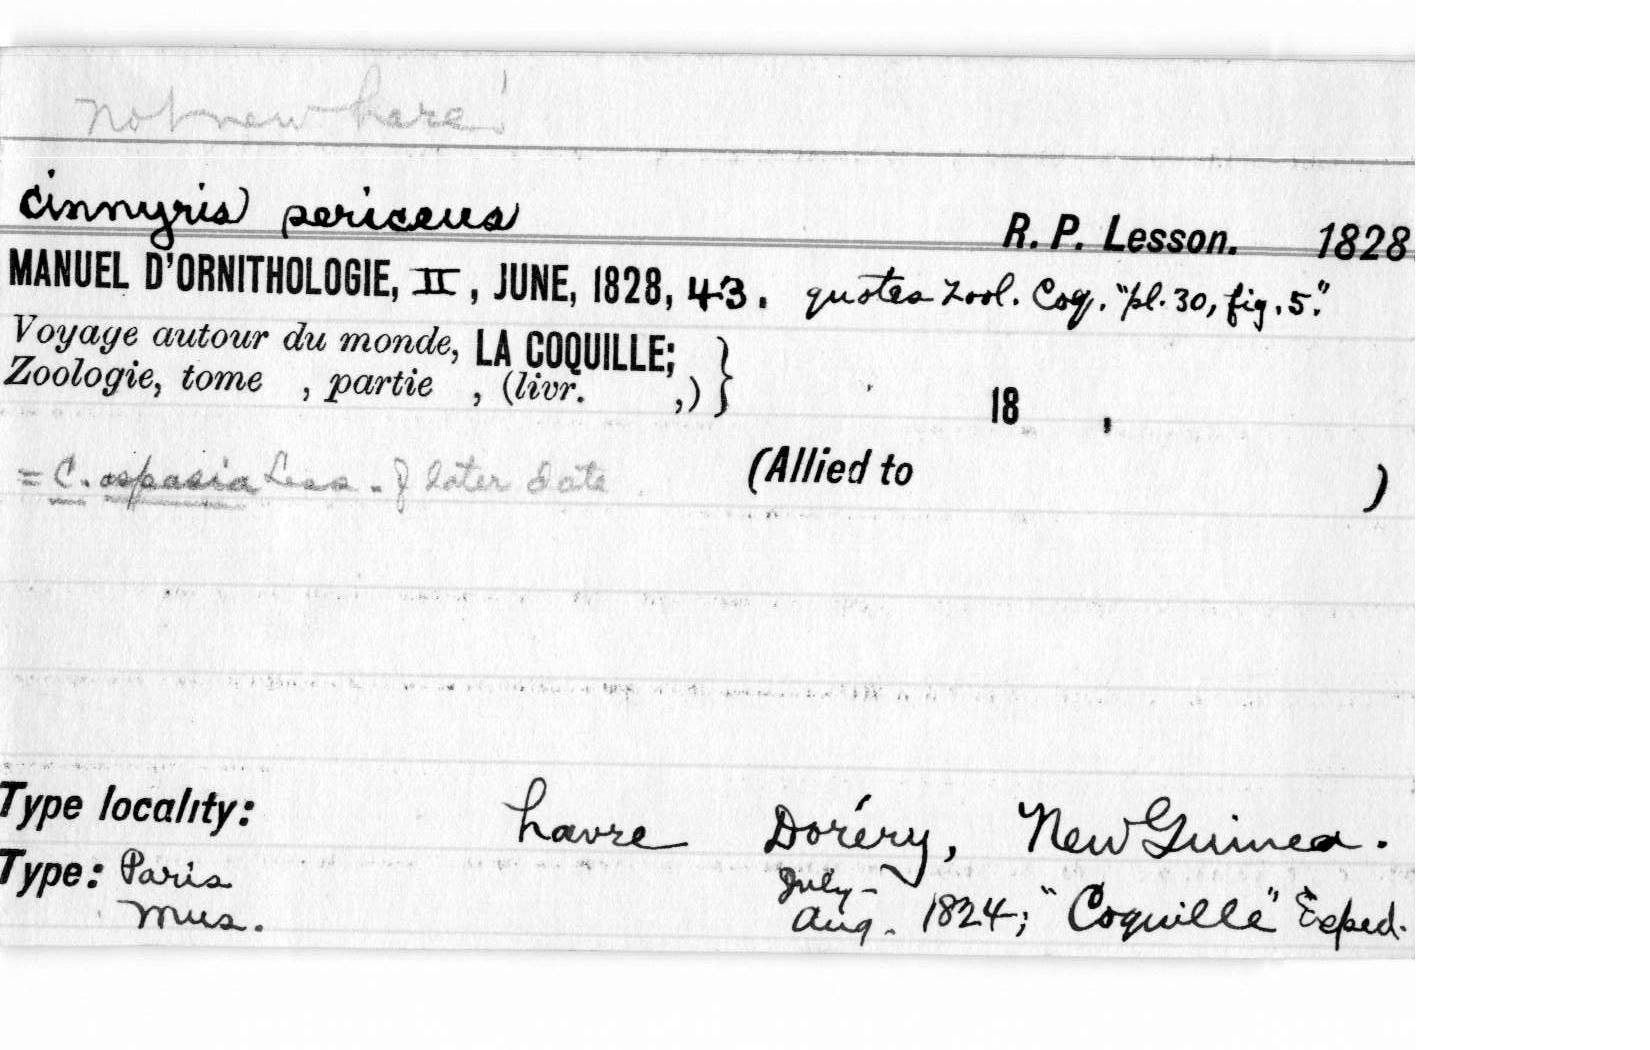 not new here!
Cinnyris sericeus R. P. Lesson. 1828
MANUEL D'ORNITHOLOGIE, II, JUNE, 1828, 43. quotes Zool. Coq. "pl. 30, fig. 5".
Voyage autour du monde, LA COQUILLE;
Zoologie, tome , partie , (livr. ,) } 18 ,
= C. aspasia Less. of later date (Allied to )
Type locality: havre Doréry, New Guinea.
Type: Paris July-
Mus. Aug. 1824; "Coquille" Exped.